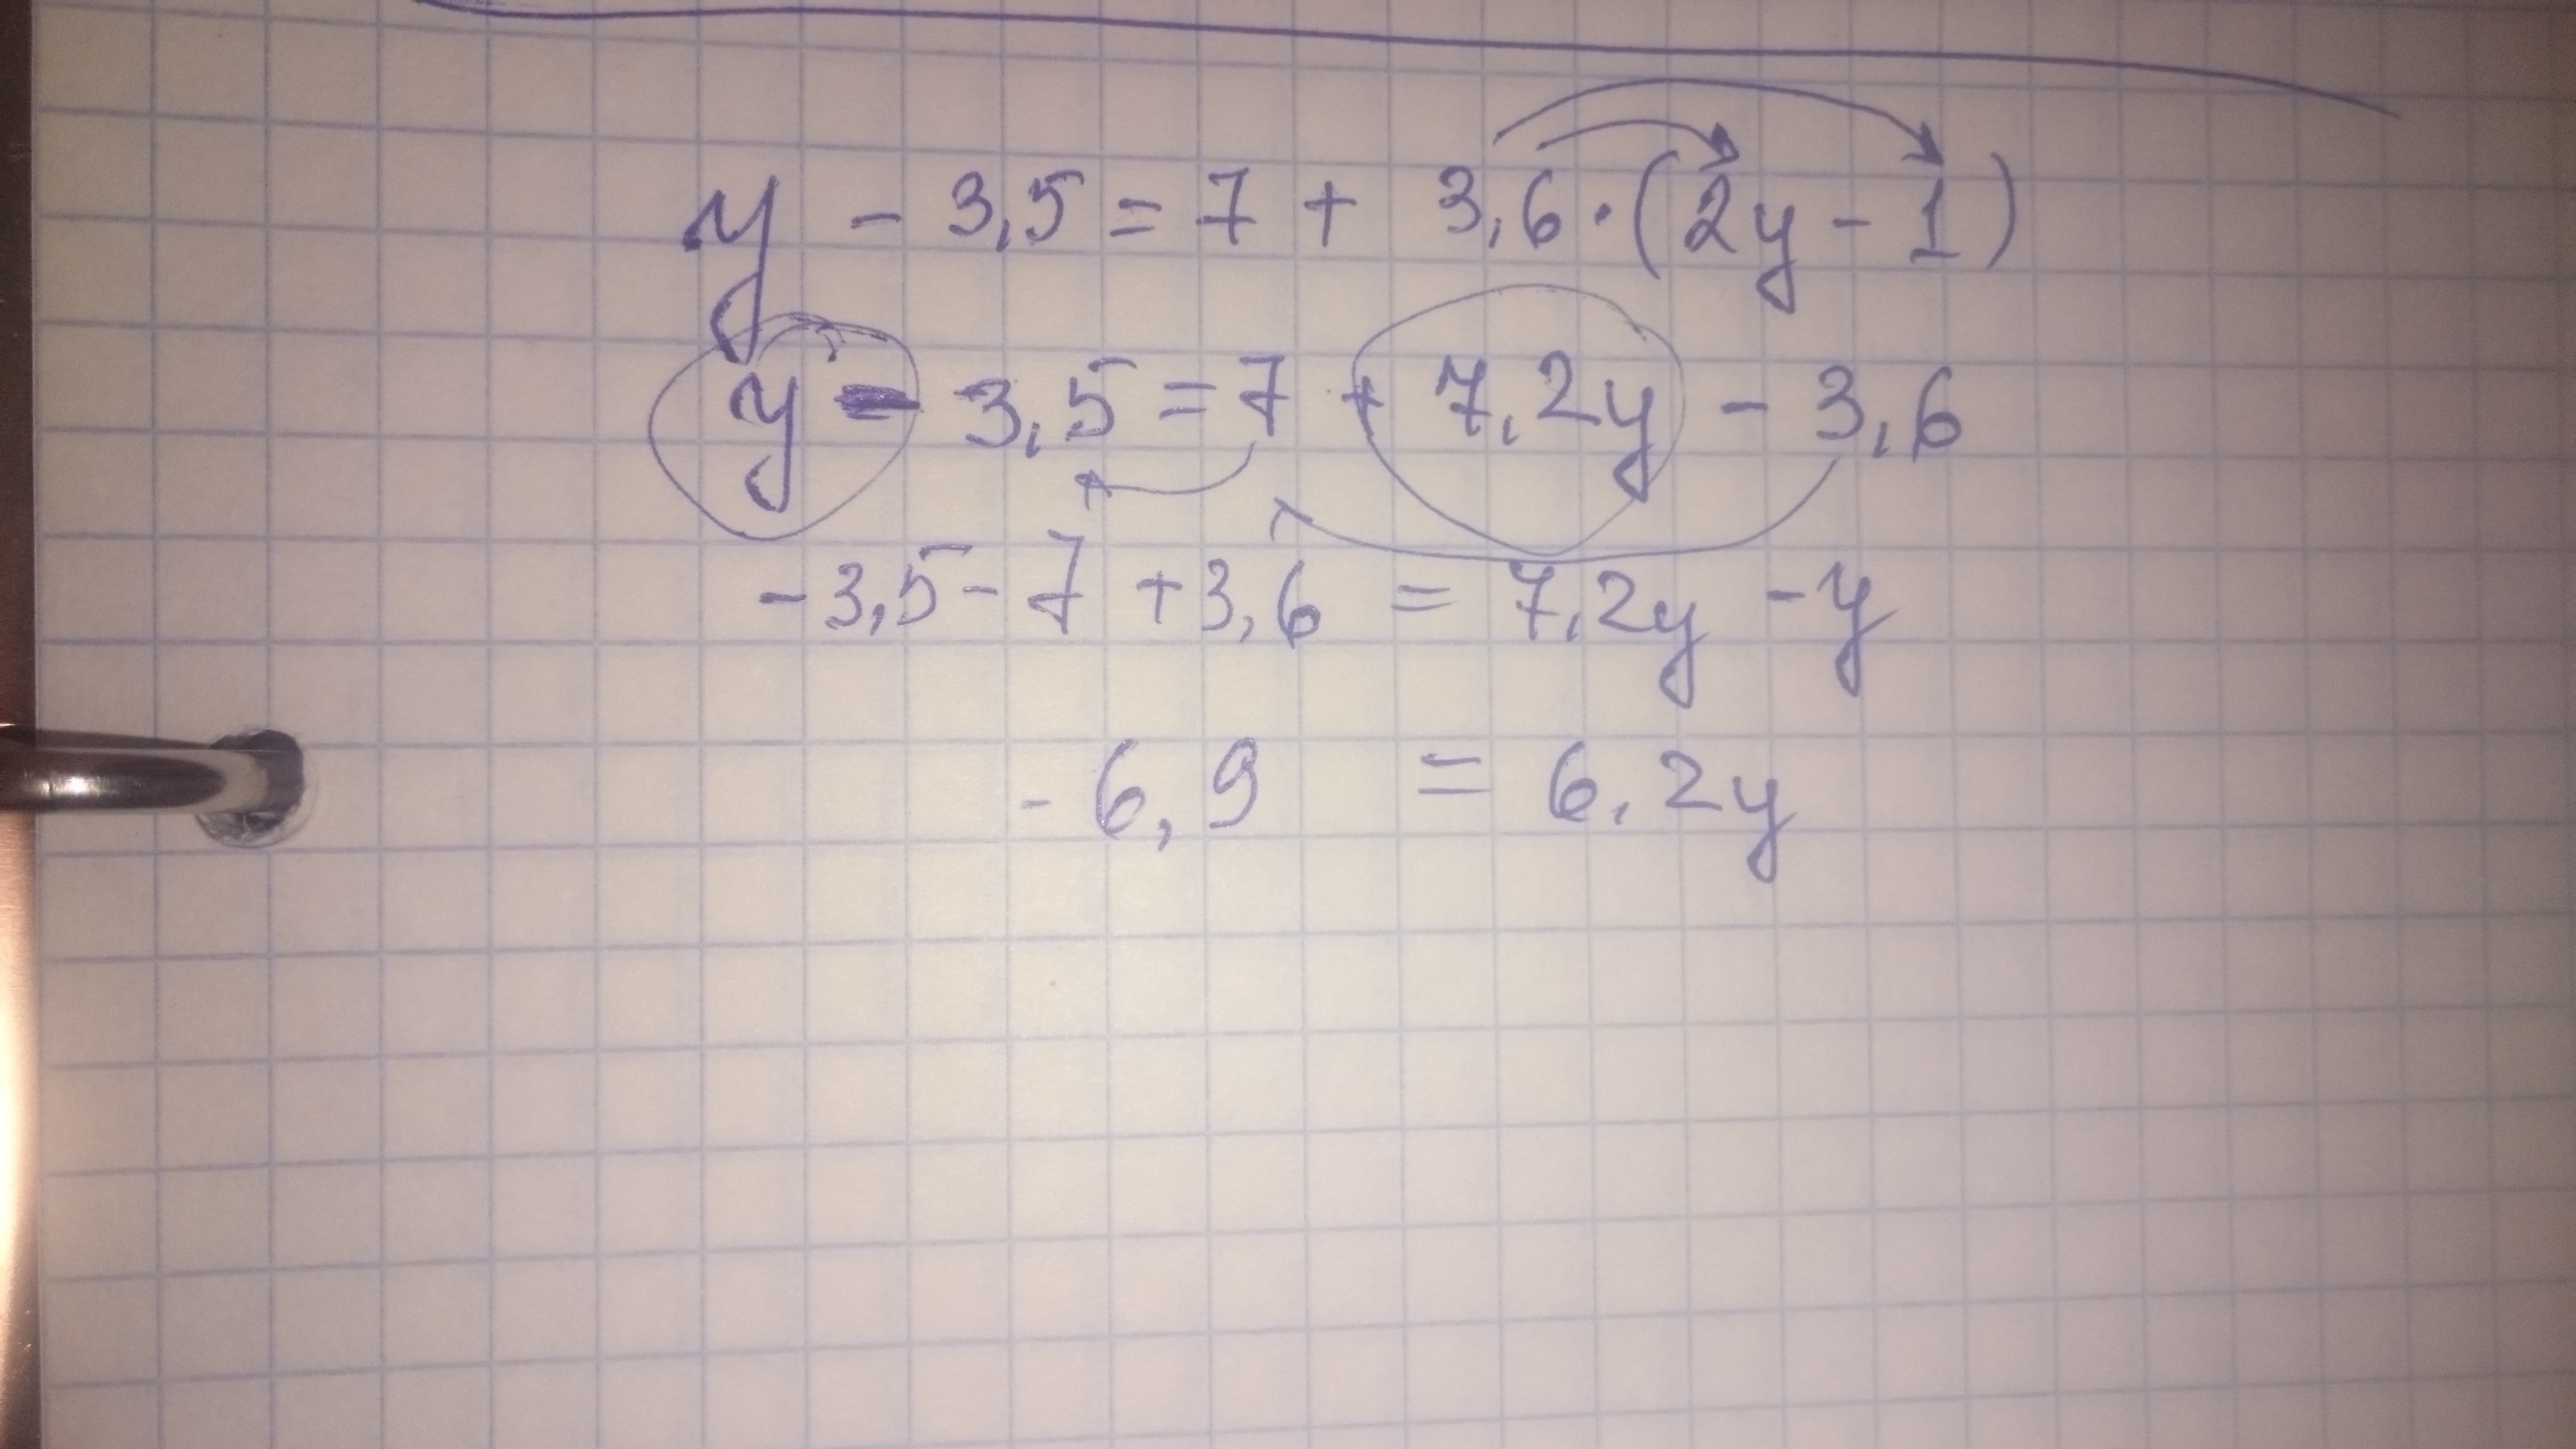 y - 3,5 = 7 + 3,6 · (2y - 1)
y - 3,5 = 7 + 7,2y - 3,6
-3,5 - 7 + 3,6 = 7,2y - y
- 6,9 = 6,2y